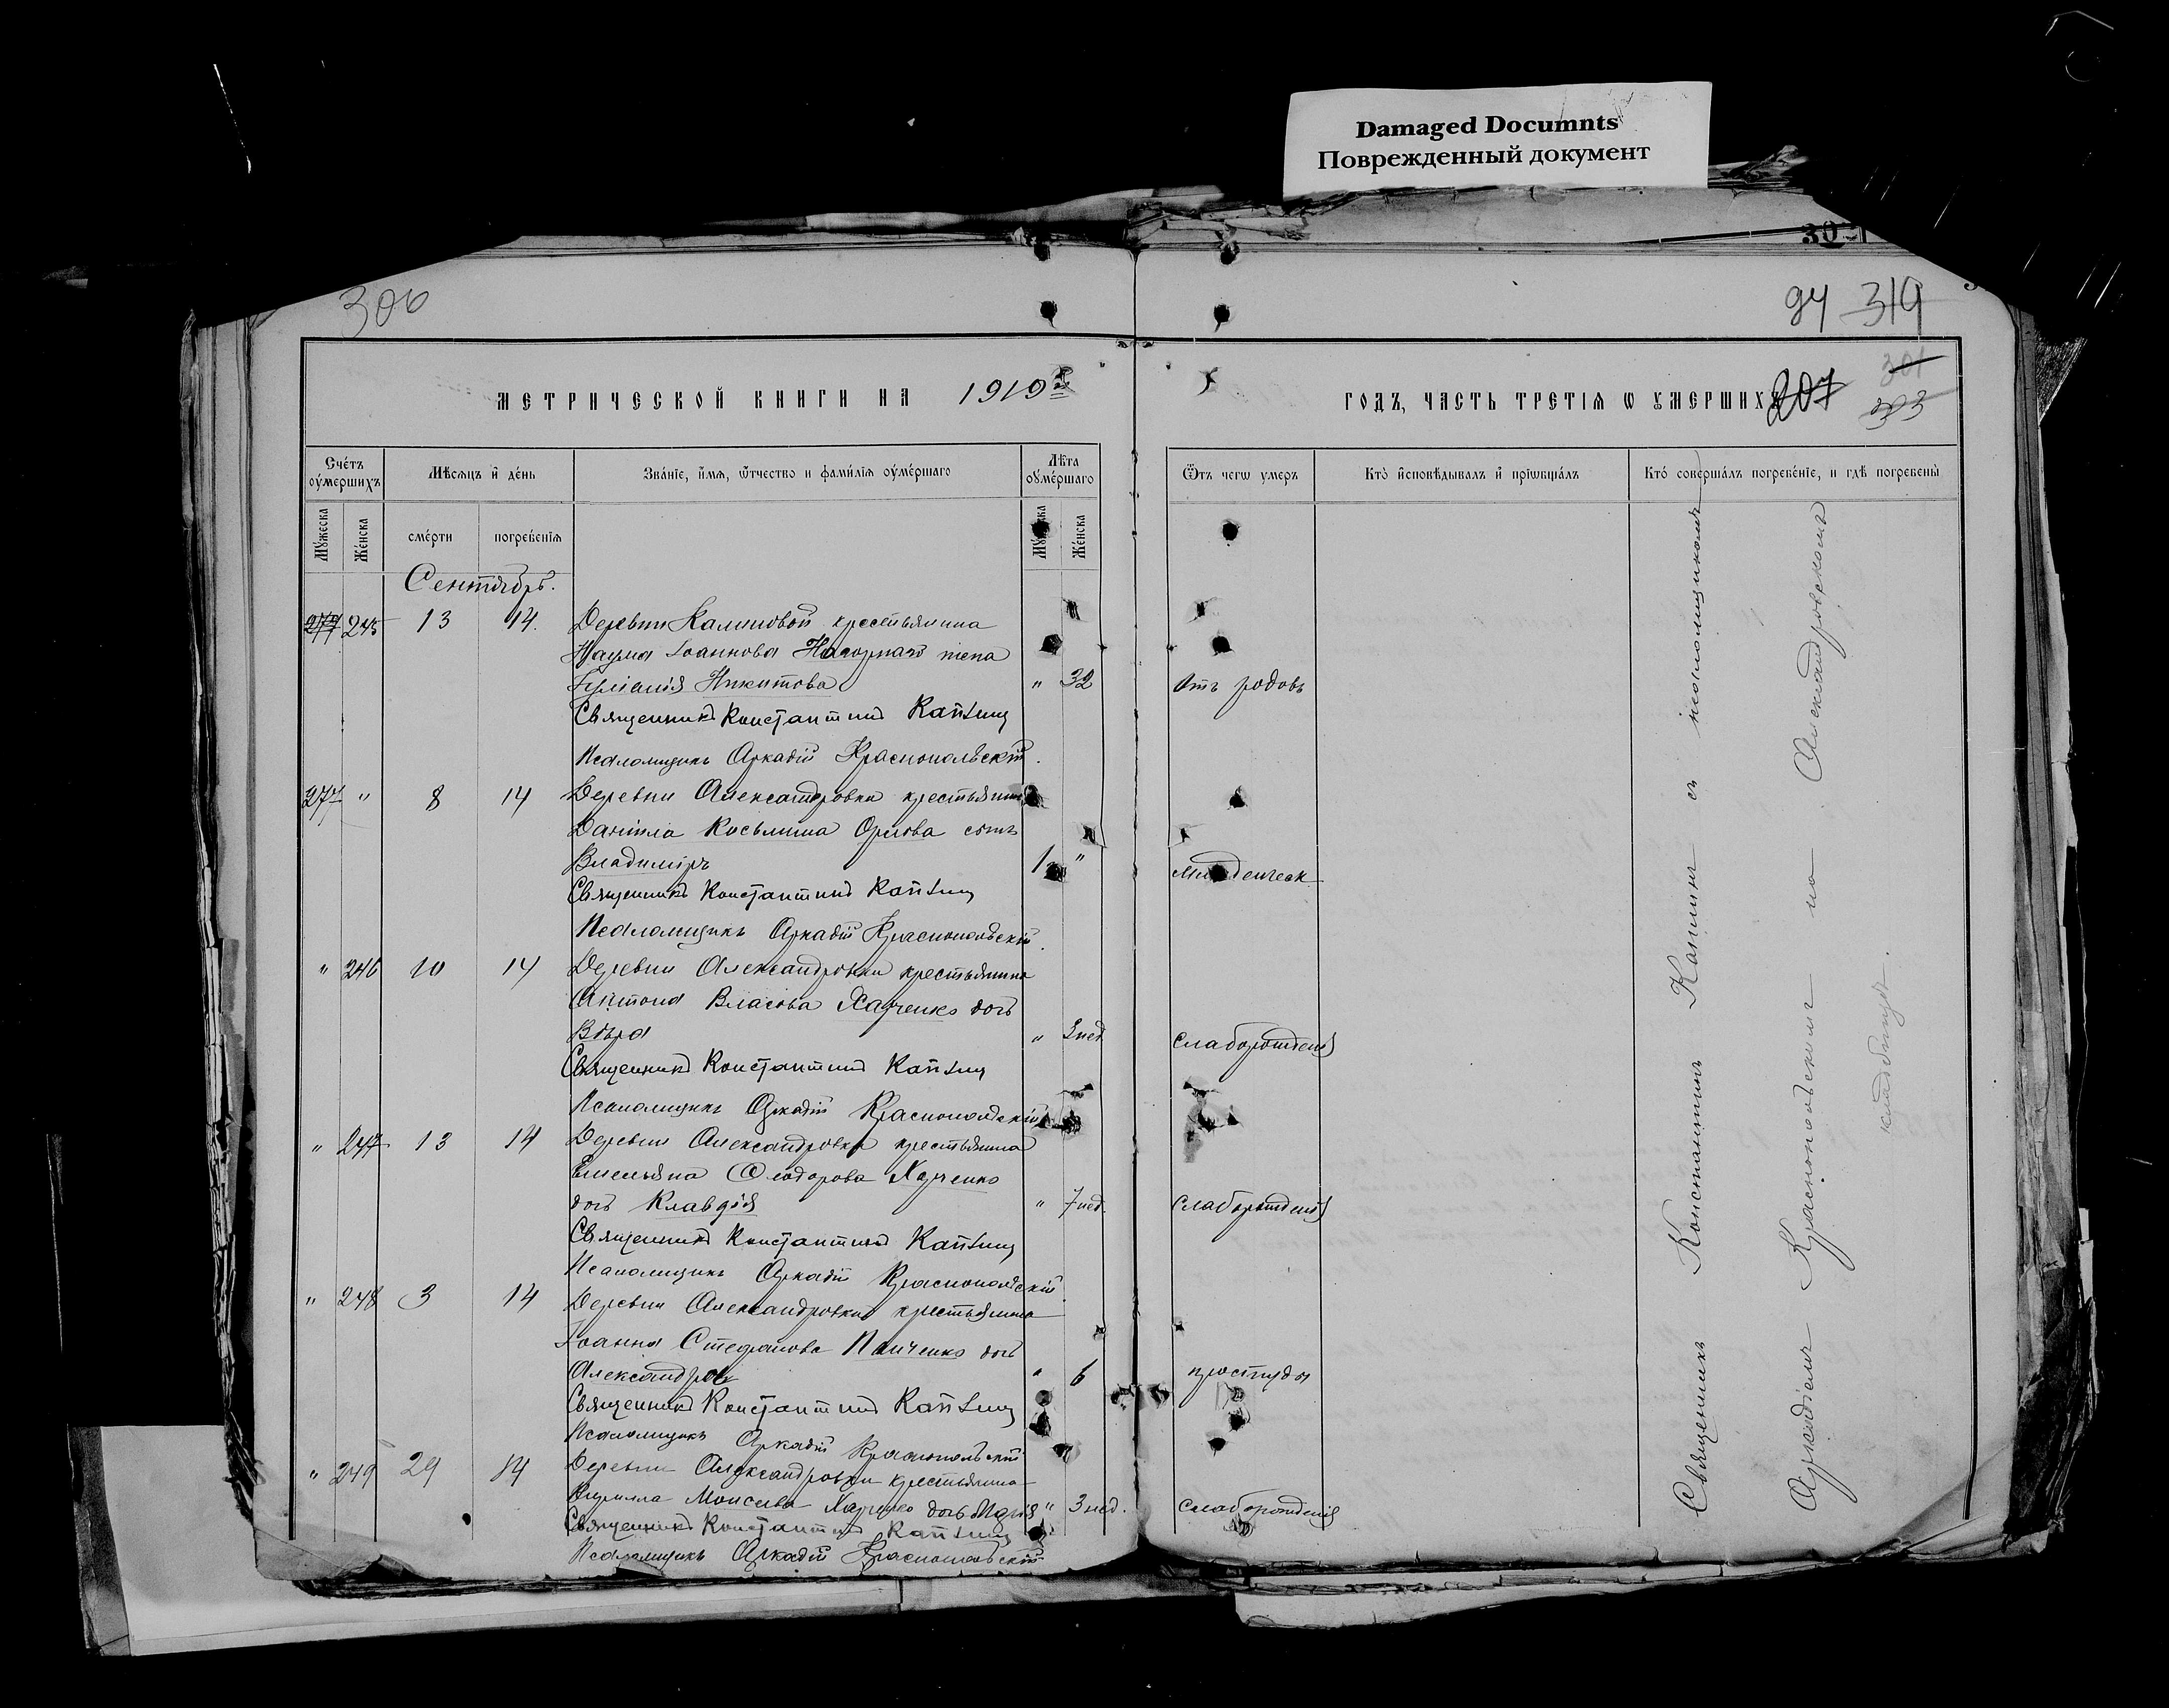 Damaged Documnts
Поврежденный документ
30
306
94 319
301
МЕТРИЧЕСКОЙ КНИГИ НА 1919
ГОДЪ, ЧАСТЬ ТРЕТІѦ Ѡ УМЕРШИХЪ 207
303
Счéтъ оумершихъ
Мѣсѧцъ и҆ дéнь
Звáніе, и҆мѧ, ѿтчество и фамилія оумéршаго
Лѣта оумéршаго
Ѿтъ чегѡ умеръ
Кто̀ и҆сповѣдывалъ и҆ прїѡбщáлъ
Ктó совершáлъ погребéнїе, и гдѣ погребены̀
Мꙋжеска
Жéнска
смéрти
погребéнїѧ
Мꙋжеска
Жéнска
Сентябрь.
277 245 13 14. Деревни Калиновой крестьянина
Наума Іоаннова Нагорнаго жена
Никитова " 32 Отъ родовъ
Священникъ Константинъ Капшин
Псаломщикъ Аркадій Краснопольскій.
277 " 8 14 Деревни Александровки крестьянина
Даніила Косьмина Орлова сынъ
Владиміръ 1 " Младенческ.
Священникъ Константинъ Капшин
Псаломщикъ Аркадій Краснопольскій.
" 246 10 14 Деревни Александровки крестьянина
Антона Власова Харченко дочь
Вѣра " 3 нед. слаборожденія
Священникъ Константинъ Капшин
Псаломщикъ Аркадій Краснопольскій
" 247 13 14 Деревни Александровки крестьянина
Емельяна Ѳеодорова Харченко
дочь Клавдія " 7 нед. слаборожденія
Священникъ Константинъ Капшин
Псаломщикъ Аркадій Краснопольскій
" 248 3 14 Деревни Александровки крестьянина
Іоанна Стефанова Панченко дочь
Александра " 6 простуды
Священникъ Константинъ Капшин
Псаломщикъ Аркадій Краснопольскій
" 249 29 14 Деревни Александровки крестьянина
Кирилла Моисеева Харченко дочь Марія " 3 нед. слаборожденія
Священникъ Константинъ Капшин
Псаломщикъ Аркадій Краснопольскій
Священникъ Константинъ Капшинъ съ псаломщикомъ
Аркадіемъ Краснопольскимъ на Александровскомъ
кладбищѣ.